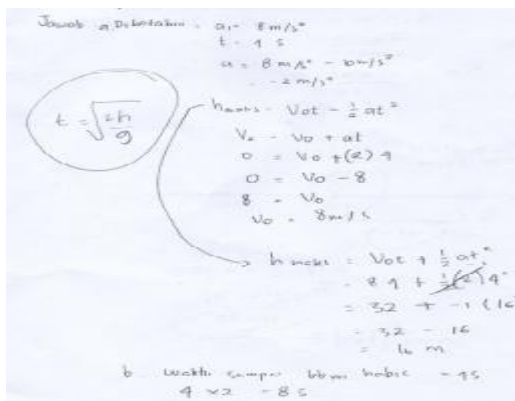 Jawab a. Diketahui = a1 = 8 m/s²
t = 4 s
a = 8 m/s² - 10 m/s²
= -2 m/s²
t = √2h/g
h maks = Vot - ½ at²
Vt = Vo + at
0 = Vo + (2) 4
0 = Vo - 8
8 = Vo
Vo = 8 m/s
h maks = Vot + ½ at²
= 8 4 + ½(2) 4²
= 32 + -1 (16
= 32 - 16
= 16 m
b waktu sampai bbm habis = 4s
4 x 2 = 8 s